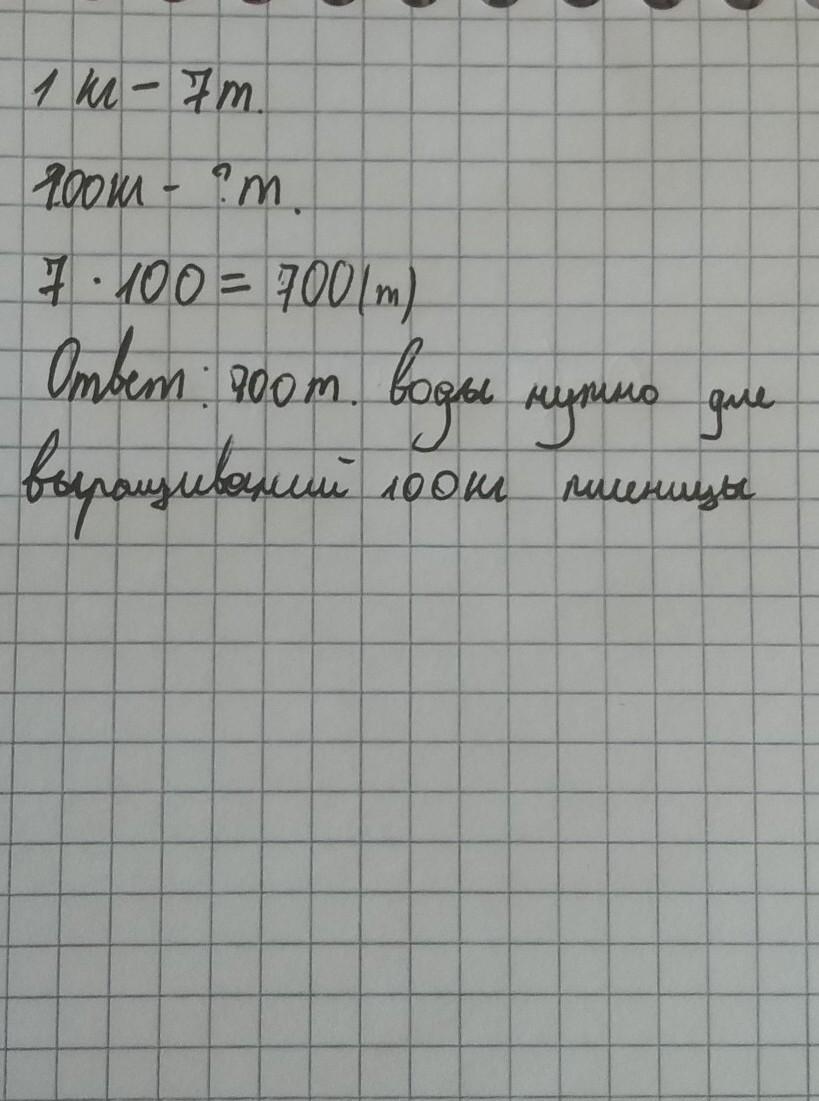 1 ш - 7т.
100ш - ?т.
7 · 100 = 700(т)
Ответ: 700т. воды нужно для
выращиваний 100ш пшеницы